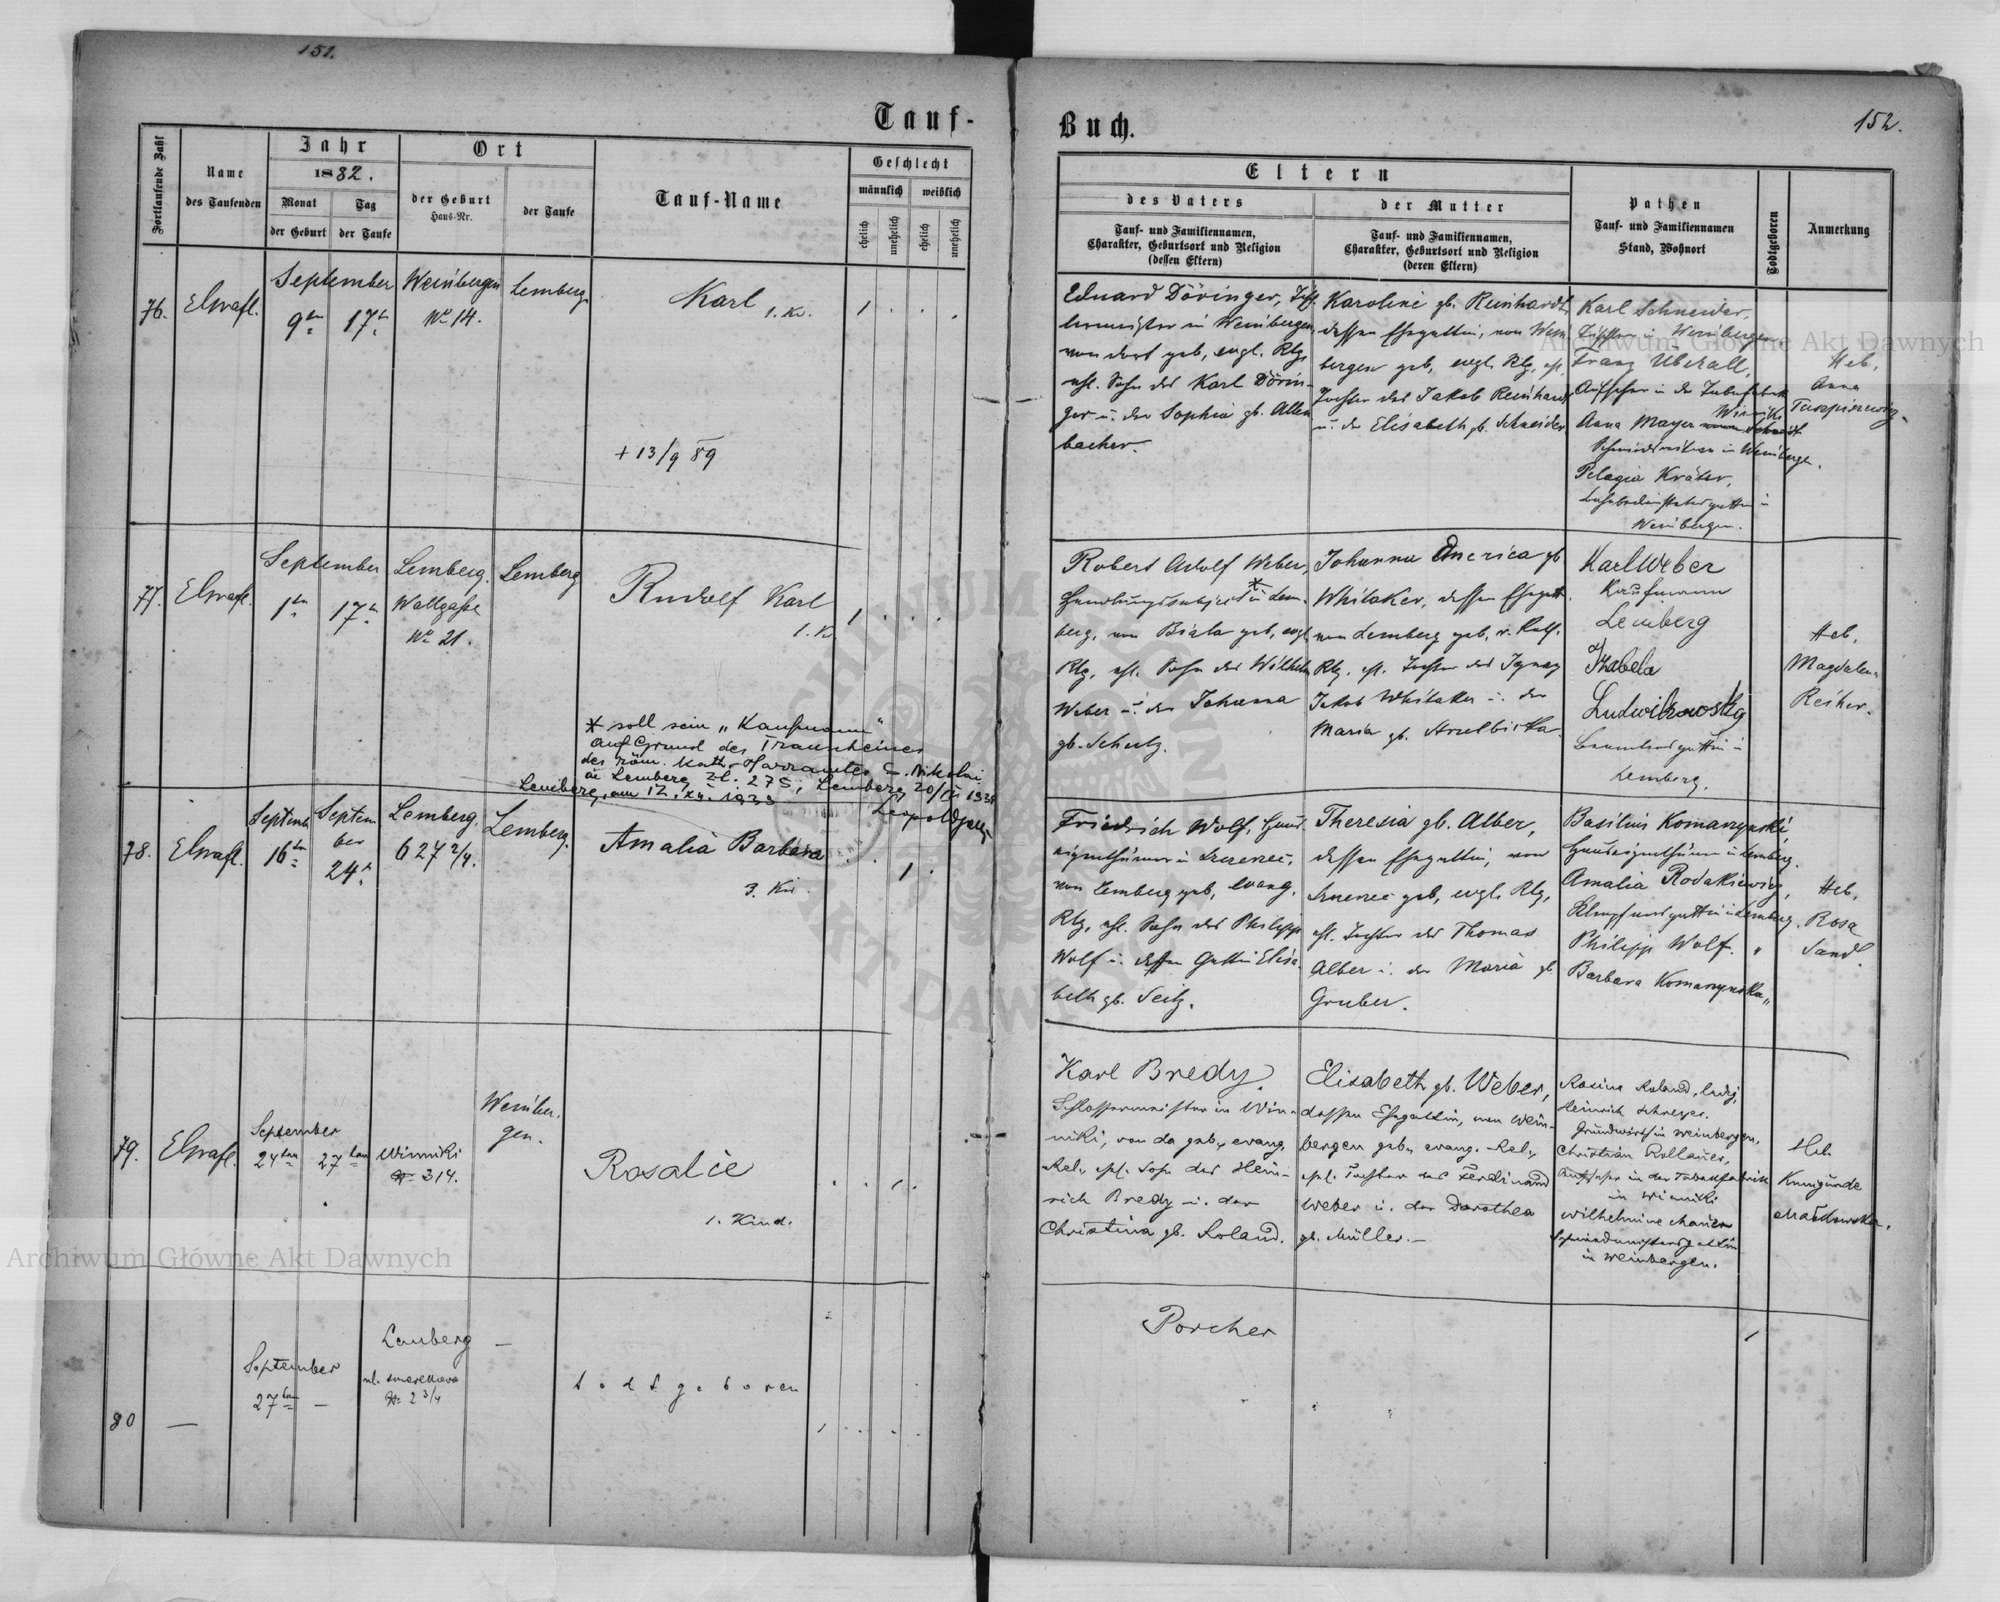 151.
Tauf-
Fortlaufende Zahl
Name
des Taufenden
Jahr
1882.
Monat
Tag
der Geburt
der Taufe
Ort
der Geburt
Haus-Nr.
der Taufe
Tauf-Name
Geschlecht
männlich
weiblich
ehelich
unehelich
ehelich
unehelich
76.
September
9
17
Weinbergen
No 14.
Lemberg
Karl
1. Kd.
+ 13/9 89
77.
September
1
17
Lemberg.
Wallgasse
No 21.
Lemberg
Rudolf Karl
1. K
* soll sein „Kaufmann"
auf Grund des Trauscheines
des röm. kath. Pfarramtes S. Nikolai
in Lemberg Zl. 275, Lemberg
Lemberg, am 12. XII. 1933
78.
September
16
24
Lemberg.
627 2/4.
Lemberg.
Amalia Barbara
3. Kd.
79.
September
24
27
Winniki
No 314.
Weinber-
gen.
Rosalie
1. Kind.
80
—
September
27
—
Lemberg
No 2 3/4
—
todtgeboren
Buch.
152.
Eltern
des Vaters
Tauf- und Familiennamen,
Charakter, Geburtsort und Religion
(dessen Eltern)
der Mutter
Tauf- und Familiennamen,
Charakter, Geburtsort und Religion
(deren Eltern)
Pathen
Tauf- und Familiennamen
Stand, Wohnort
Todtgeboren
Anmerkung
Eduard Döringer, Tisch-
lermeister in Weinbergen,
von dort geb, evgl. Rlg,
ehl. Sohn des Karl Dörin-
ger u. der Sophia gb. Allen
bacher.
Karoline gb. Reinhardt,
dessen Ehegattin, von Wein
bergen geb, evgl. Rlg, ehl.
Tochter des Jakob Reinhardt
u. der Elisabeth gb. Schneider.
Karl Schneider,
Tischler in Weinbergen
Franz Überall,
Aufseher in der
Winniki
Anna Mayer
in Weinbergen.
Pelagia Kräter,
in
Weinbergen.
Heb.
Anna
Robert Adolf Weber,
in Lem-
berg, von Biala geb, evgl.
Rlg, ehl. Sohn des Wilhelm
Weber u. der Johanna
gb. Schulz.
Johanna America gb
Whitaker, dessen Ehegatt.
von Lemberg geb, r. kath.
Rlg, ehl. Tochter des Ignaz
Jakob Whitaker u. der
Maria gb.
Karl Weber
Kaufmann
Lemberg
Izabela
Ludwikowska
Beamtensgattin in
Lemberg.
Heb.
Magdalena
Reiher.
Friedrich Wolf, Haus-
eigenthümer in
von Lemberg geb, evang.
Rlg, ehl. Sohn des Philipp
Wolf u. dessen Gattin Elisa-
beth gb. Seitz.
Theresia gb. Alber,
dessen Ehegattin, von
geb, evgl. Rlg,
ehl. Tochter des Thomas
Alber u. der Maria gb
Gruber.
Basilius Komarzynski,
Hauseigenthümer in Lemberg.
Amalia Rodakiewicz,
in Lemberg.
Philipp Wolf. "
Barbara Komarzynska "
Heb.
Rosa
Sand.
Karl Bredy.
Schlossermeister in Win-
niki, von da geb., evang.
Rel., ehl. Sohn des Hein-
rich Bredy u. der
Christina gb. Roland.
Elisabeth gb. Weber,
dessen Ehegattin, von Wein-
bergen geb., evang. Rel.,
ehl. Tochter des Ferdinand
Weber u. der Dorothea
gb. Müller.—
Rosina Roland, ledig,
Heinrich Schreyer.
Grundwirth in Weinbergen,
Christian Rollauer,
Aufseher in der Tabakfabrik
in Winniki
Wilhelmine Mauer
Schmiedmeistersgattin
in Weinbergen.
Heb.
Kunigunde
Porcher
Archiwum Główne Akt Dawnych
Archiwum Główne Akt Dawnych